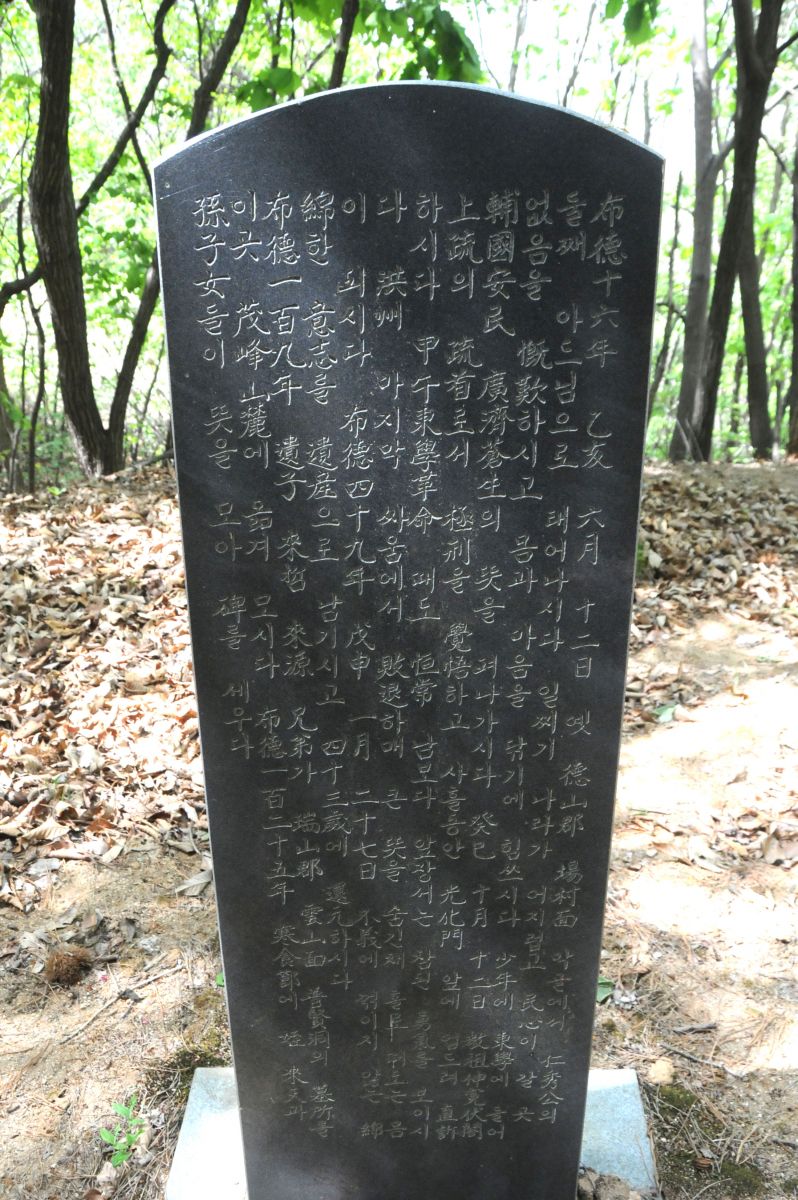 布德十六年 乙亥 六月 十二日 옛 德山郡 場村面 막골에서 仁秀公의
둘째 아드님으로 태어나시다 일찌기 나라가 어지럽고 民心이 갈 곳
없음을 慨歎하시고 몸과 마음을 닦기에 힘쓰시다 少年에 東學에 들어
輔國安民 廣濟蒼生의 뜻을 펴나가시다 癸巳 十月 十二日 敎祖伸寃伏閤
上疏의 疏首로서 極刑을 覺悟하고 사흘동안 光化門 앞에 엎드려 直訴
하시다 甲午東學革命 때도 恒常 남보다 앞장서는 참된 勇氣를 보이시
다 洪州 마지막 싸움에서 敗退하매 큰 뜻을 숨긴채 몸
이 되시다 布德四十九年 戊申 一月 二十七日 不義에 꺾이지 않는 綿
綿한 意志를 遺産으로 남기시고 四十三歲에 還元하시다
布德一百九年 遺子 來哲 來源 兄弟가 瑞山郡 雲山面 普賢洞의 墓所를
이곳 茂峰山麓에 옮겨 모시다 布德一百二十五年 寒食節에 來 과
孫子女들이 뜻을 모아 碑를 세우다